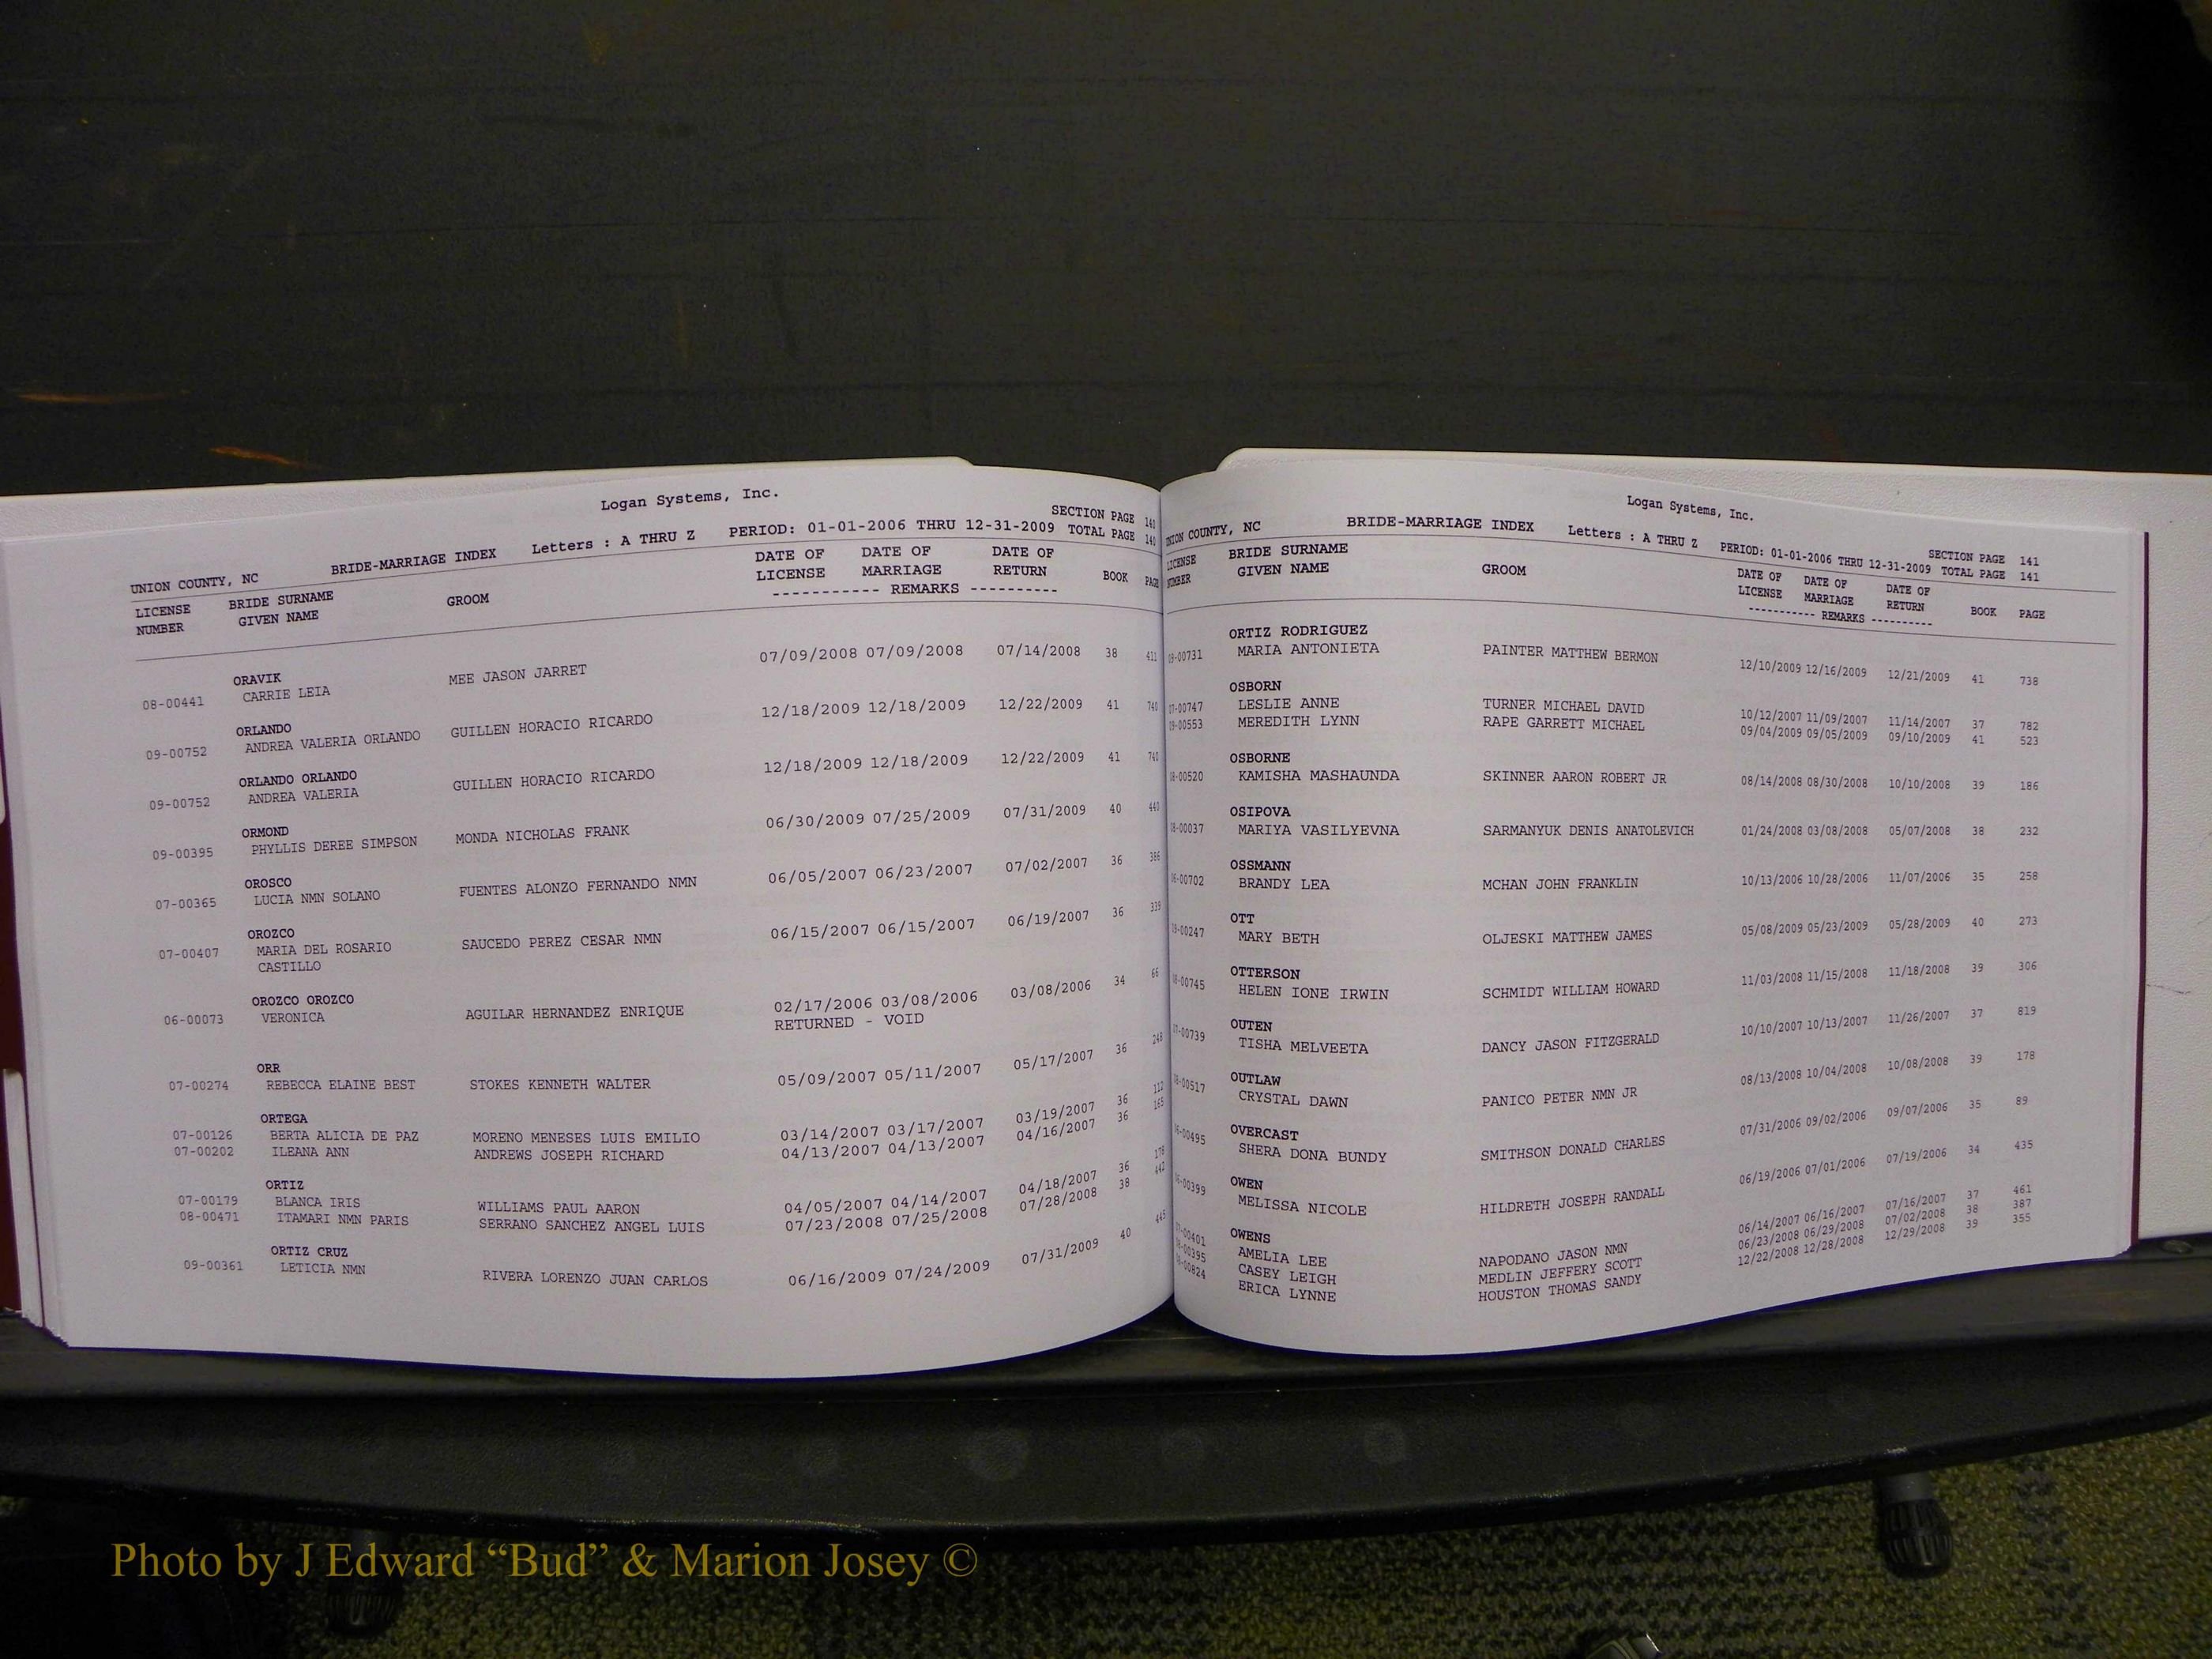 Logan Systems, Inc.
SECTION PAGE 140
UNION COUNTY, NC BRIDE-MARRIAGE INDEX Letters : A THRU Z PERIOD: 01-01-2006 THRU 12-31-2009 TOTAL PAGE 140
LICENSE BRIDE SURNAME GROOM DATE OF DATE OF DATE OF
NUMBER GIVEN NAME LICENSE MARRIAGE RETURN BOOK PAGE
----------- REMARKS ----------
ORAVIK
08-00441 CARRIE LEIA MEE JASON JARRET 07/09/2008 07/09/2008 07/14/2008 38 411
ORLANDO
09-00752 ANDREA VALERIA ORLANDO GUILLEN HORACIO RICARDO 12/18/2009 12/18/2009 12/22/2009 41 740
ORLANDO ORLANDO
09-00752 ANDREA VALERIA GUILLEN HORACIO RICARDO 12/18/2009 12/18/2009 12/22/2009 41 740
ORMOND
09-00395 PHYLLIS DEREE SIMPSON MONDA NICHOLAS FRANK 06/30/2009 07/25/2009 07/31/2009 40 440
OROSCO
07-00365 LUCIA NMN SOLANO FUENTES ALONZO FERNANDO NMN 06/05/2007 06/23/2007 07/02/2007 36 386
OROZCO
07-00407 MARIA DEL ROSARIO SAUCEDO PEREZ CESAR NMN 06/15/2007 06/15/2007 06/19/2007 36 339
CASTILLO
OROZCO OROZCO
06-00073 VERONICA AGUILAR HERNANDEZ ENRIQUE 02/17/2006 03/08/2006 03/08/2006 34 66
RETURNED - VOID
ORR
07-00274 REBECCA ELAINE BEST STOKES KENNETH WALTER 05/09/2007 05/11/2007 05/17/2007 36 248
ORTEGA
07-00126 BERTA ALICIA DE PAZ MORENO MENESES LUIS EMILIO 03/14/2007 03/17/2007 03/19/2007 36 112
07-00202 ILEANA ANN ANDREWS JOSEPH RICHARD 04/13/2007 04/13/2007 04/16/2007 36 165
ORTIZ
07-00179 BLANCA IRIS WILLIAMS PAUL AARON 04/05/2007 04/14/2007 04/18/2007 36
08-00471 ITAMARI NMN PARIS SERRANO SANCHEZ ANGEL LUIS 07/23/2008 07/25/2008 07/28/2008 38 442
ORTIZ CRUZ
09-00361 LETICIA NMN RIVERA LORENZO JUAN CARLOS 06/16/2009 07/24/2009 07/31/2009 40 445
Logan Systems, Inc.
SECTION PAGE 141
UNION COUNTY, NC BRIDE-MARRIAGE INDEX Letters : A THRU Z PERIOD: 01-01-2006 THRU 12-31-2009 TOTAL PAGE 141
LICENSE BRIDE SURNAME GROOM DATE OF DATE OF DATE OF
NUMBER GIVEN NAME LICENSE MARRIAGE RETURN BOOK PAGE
----------- REMARKS ----------
ORTIZ RODRIGUEZ
09-00731 MARIA ANTONIETA PAINTER MATTHEW BERMON 12/10/2009 12/16/2009 12/21/2009 41 738
OSBORN
07-00747 LESLIE ANNE TURNER MICHAEL DAVID 10/12/2007 11/09/2007 11/14/2007 37 782
09-00553 MEREDITH LYNN RAPE GARRETT MICHAEL 09/04/2009 09/05/2009 09/10/2009 41 523
OSBORNE
08-00520 KAMISHA MASHAUNDA SKINNER AARON ROBERT JR 08/14/2008 08/30/2008 10/10/2008 39 186
OSIPOVA
08-00037 MARIYA VASILYEVNA SARMANYUK DENIS ANATOLEVICH 01/24/2008 03/08/2008 05/07/2008 38 232
OSSMANN
06-00702 BRANDY LEA MCHAN JOHN FRANKLIN 10/13/2006 10/28/2006 11/07/2006 35 258
OTT
09-00247 MARY BETH OLJESKI MATTHEW JAMES 05/08/2009 05/23/2009 05/28/2009 40 273
OTTERSON
08-00745 HELEN IONE IRWIN SCHMIDT WILLIAM HOWARD 11/03/2008 11/15/2008 11/18/2008 39 306
OUTEN
07-00739 TISHA MELVEETA DANCY JASON FITZGERALD 10/10/2007 10/13/2007 11/26/2007 37 819
OUTLAW
08-00517 CRYSTAL DAWN PANICO PETER NMN JR 08/13/2008 10/04/2008 10/08/2008 39 178
OVERCAST
06-00495 SHERA DONA BUNDY SMITHSON DONALD CHARLES 07/31/2006 09/02/2006 09/07/2006 35 89
OWEN
06-00399 MELISSA NICOLE HILDRETH JOSEPH RANDALL 06/19/2006 07/01/2006 07/19/2006 34 435
OWENS
07-00401 AMELIA LEE NAPODANO JASON NMN 06/14/2007 06/16/2007 07/16/2007 37 461
08-00395 CASEY LEIGH MEDLIN JEFFERY SCOTT 06/23/2008 06/29/2008 07/02/2008 38 387
08-00824 ERICA LYNNE HOUSTON THOMAS SANDY 12/22/2008 12/28/2008 12/29/2008 39 355
Photo by J Edward “Bud” & Marion Josey ©